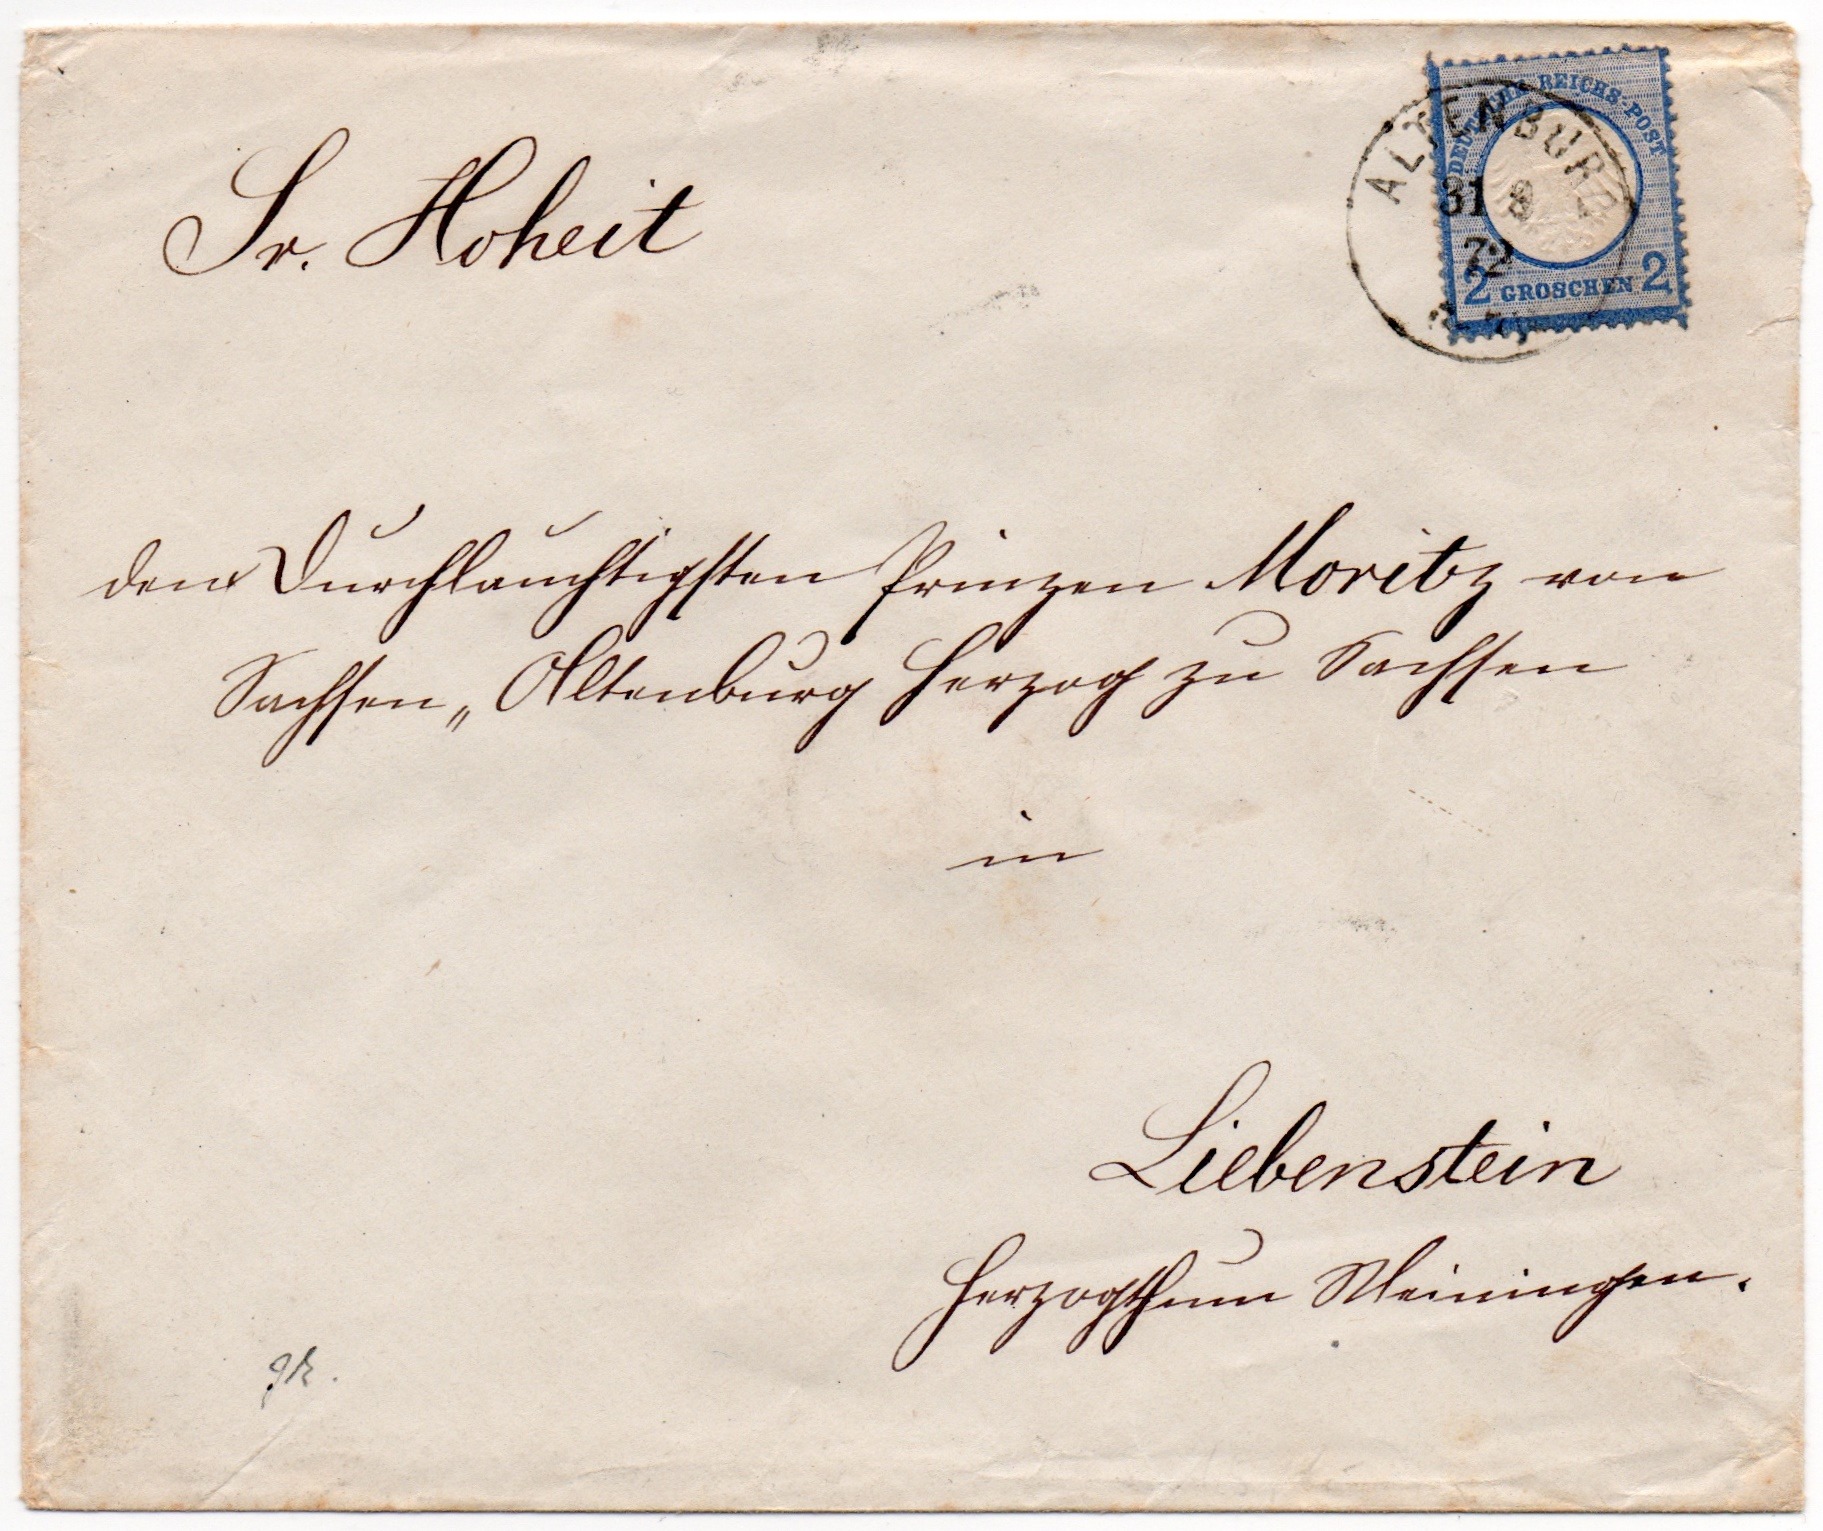 Sr. Hoheit
DEUTSCHE REICHS-POST
ALTENBURG
31 8
72
2 GROSCHEN 2
dem Durchlauchtigsten Prinzen Moritz von
Sachsen„ Altenburg Herzog zu Sachsen
in
Liebenstein
Herzogthum Meiningen.